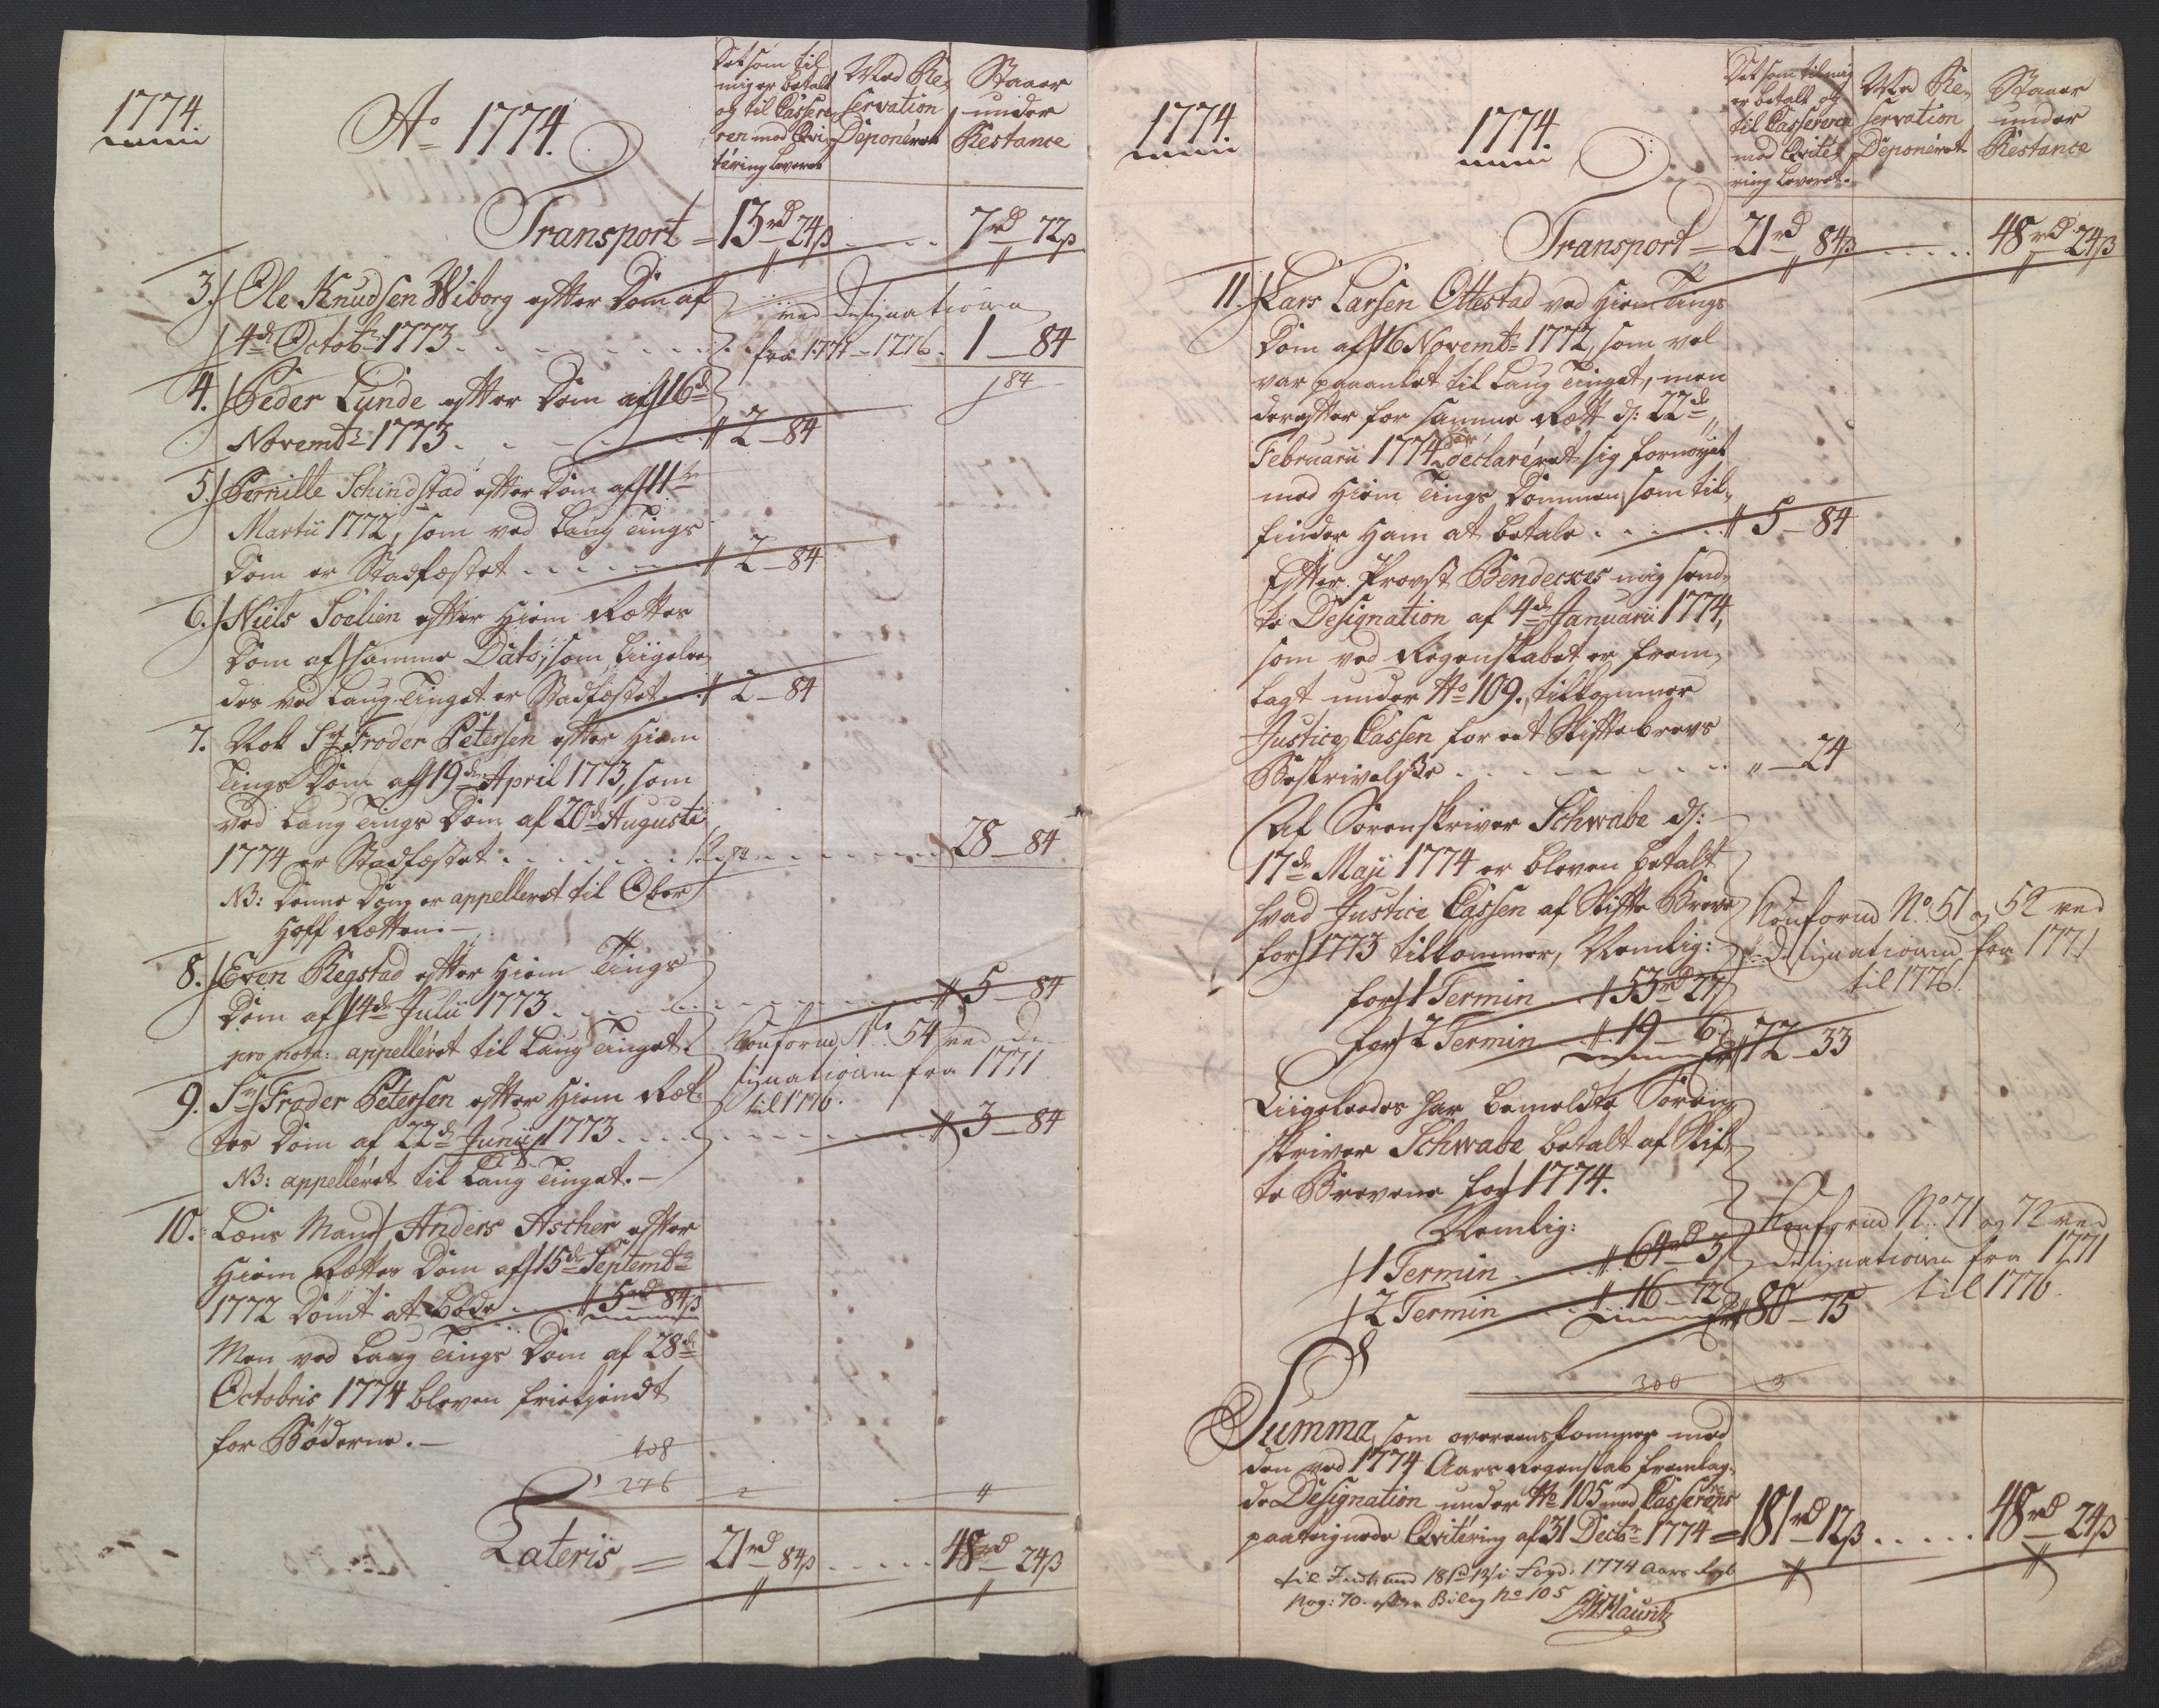 1774.
Ao 1774.
Det som til
mig er betalt
og til Cassere,
ren mod Qvi,
tering leveret
Med Re,
servation
Deponeret
Staaer
under
Restance
Transport = 13rd 24ß . . . . 7rd 72ß
3.) Ole Knudsen Wiborg efter Dom af
4de Octobr 1773. . . . . . . . . 1 — 84
ved designationen
fra 1771 — 1776.
84
4. Peder Lunde efter Dom af 16de
Novembr 1773. . . . . . 2 — 84
5.) Pernille Schindstad efter Dom af 11te
Martii 1772, som ved Laug Tings
Dom er Stadfæstet . . . . . 2 — 84
6.) Niels Soelien efter Hiem Rettes
Dom af samme Dato, som liigelee,
des ved Laug-Tinget er Stadfæstet . . 2 — 84
7. Nok Sr Froder Petersen efter Hiem
Tings Dom af 19de April 1773, som
ved Laug Tings Dom af 20de Augusti
1774 er Stadfæstet . . . . . . . . . 28 — 84
NB: Denne Dom er appelleret til Ober
Hoff Retten. —
8.) Even Regstad efter Hiem Tings
Dom af 14de Julii 1773. . . . . . . . 5 — 84
pro nota: appelleret til Laug Tinget.
Conform No. 54 ved de-
signationen fra 1771
til 1776.
9. Sr Froder Petersen efter Hiem Ret-
tes Dom af 22de Junii 1773. . . . . . . . 3 — 84
NB: appelleret til Laug Tinget. —
10. Læns Mand Anders Ascher efter
Hiem Rettes Dom af 15de Septembr
1772 Dömt at bøde . . . 5rd 84ß
Men ved Laug Tings Dom af 28de
Octobris 1774 bleven friekiendt
for Bøderne. —
408
276
Lateris = 21rd 84ß . . . . . 48rd 24ß
1774.
1774.
Det som til mig
er betalt og
til Cassereren
mod Qvite,
ring leveret.
Med Re,
servation
Deponeret
Staaer
under
Restance
Transport = 21rd 84ß . . . . . 48rd 24ß
11. Lars Larsen Ottestad ved Hiem Tings
Dom af 16 Novembr 1772, som vel
var paaanket til Laug Tinget, men
derefter for samme Rett d: 22de
Februarii 1774 har declareret sig fornøyet
med Hiem Tings Dommen, som til,
finder Ham at betale . . . . . 5 — 84
Efter Provst Bendexes mig send,
te Designation af 4de Januarii 1774,
som ved Regenskabet er frem,
lagt under No 109. tilkommer
Justice Cassen for eet Skiftebrevs
Beskrivelse . . . . . . . . " — 24
Af Sorenskriver Schwabe d:
17de Maji 1774 er bleven betalt
hvad Justice Cassen af Skifte Breve
for 1773 tilkommer, Nemlig:
Conform No. 51 og 52 ved
designationen fra 1771
til 1776.
for 1 Termin . . 53rd 27
for 2 Termin . . 19 — 6 72 — 33
Liigeleedes har bemeldte Soren,
skriver Schwabe betalt af Skif,
te Brevene for 1774.
Nemlig:
Conform No 71 og 72 ved
designationen fra 1771
til 1776.
1 Termin . . . 64rd 3
2 Termin . . . 16 — 72 80 — 75
300 3
Summa, som overeenskommer med
den ved 1774 Aars Regenskab fremlag,
de Designation under No 105 med Casserens
paategnede Qvitering af 31 Decbr 1774 = 181rd 12ß . . . . . 48rd 24ß
1774 Aars
pag: 70. efter Bilag No 105